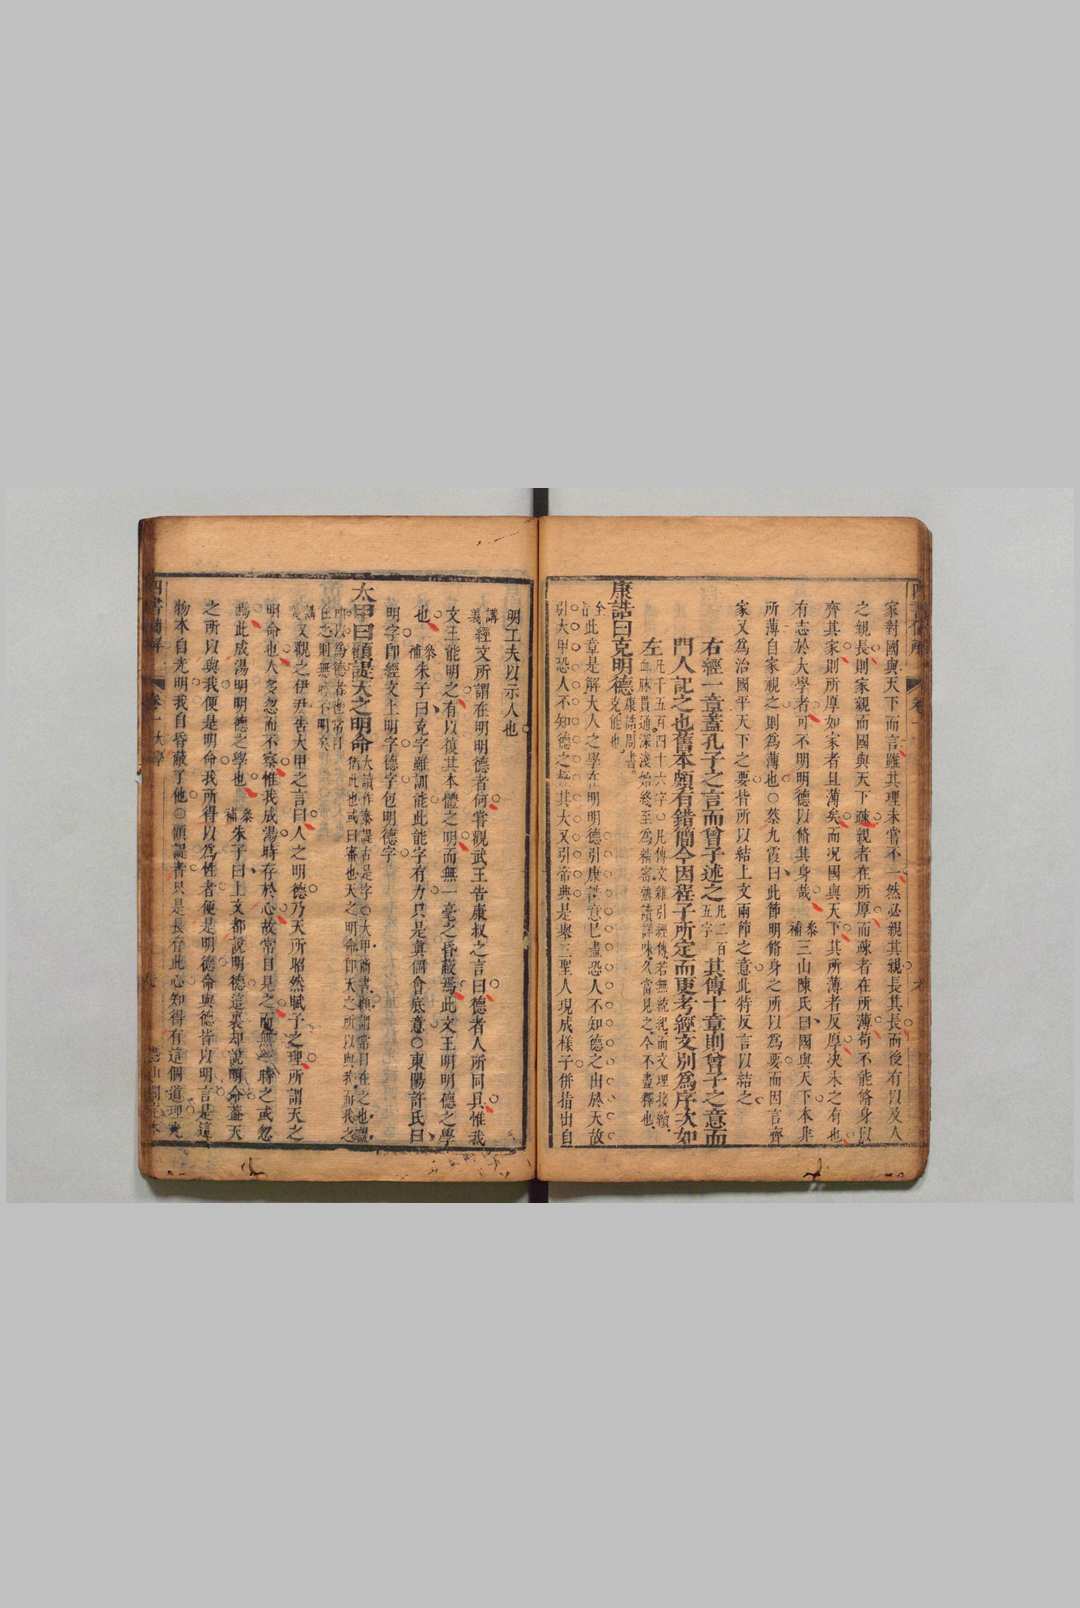 家對國與天下而言雖其理未嘗不一然必親其親長其長而後有以及人
之親長則家親而國與天下疎親者在所厚而疎者在所薄苟不能脩身以
齊其家則所厚如家者且薄矣而况國與天下其所薄者反厚决未之有也
有志於大學者可不明明德以脩其身哉 參補 三山陳氏曰國與天下本非
所薄自家視之則為薄也○蔡九霞曰此節明脩身之所以為要而因言齊
家又為治國平天下之要皆所以結上文兩節之意此特反言以結之
右經一章蓋孔子之言而曾子述之 凡二百五字 其傳十章則曾子之意而
門人記之也舊本頗有錯簡今因程子所定而更考經文別為序次如
左 凡千五百四十六字○凡傳文雜引經傳若無統紀而文理接續
血脉貫通深淺始終至為精密熟讀詳味久當見之今不盡釋也
康誥曰克明德 康誥周書克能也
全旨 此章是解大人之學在明明德引康誥意已盡恐人不知德之由於天故
引大甲恐人不知德之極其大又引帝典是舉三聖人現成樣子併指出自
明工夫以示人也
講義 經文所謂在明明德者何嘗觀武王告康叔之言曰德者人所同具惟我
文王能明之有以復其本體之明而無一毫之昏蔽焉此文王明明德之學
也 參補 朱子曰克字雖訓能此能字有力只是真個會底意○東陽許氏曰
明字即經文上明字德字包明德字
太甲曰顧諟天之明命 大讀作泰諟古是字○太甲商書顧謂常目在之也諟
猶此也或曰審也天之明命即天之所以與我而我之
所以為德者也常目
在之則無時不明矣
講義 又觀之伊尹告太甲之言曰人之明德乃天所昭然賦予之理所謂天之
明命也人多忽而不察惟我成湯時存於心故常目見之而無一時之或忽
焉此成湯明明德之學也 參補 朱子曰上文都說明德這裏却說明命蓋天
之所以與我便是明命我所得以為性者便是明德命與德皆以明言是這
物本自光明我自昏蔽了他○顧諟者只是長存此心知得有這個道理光
卷一 大學